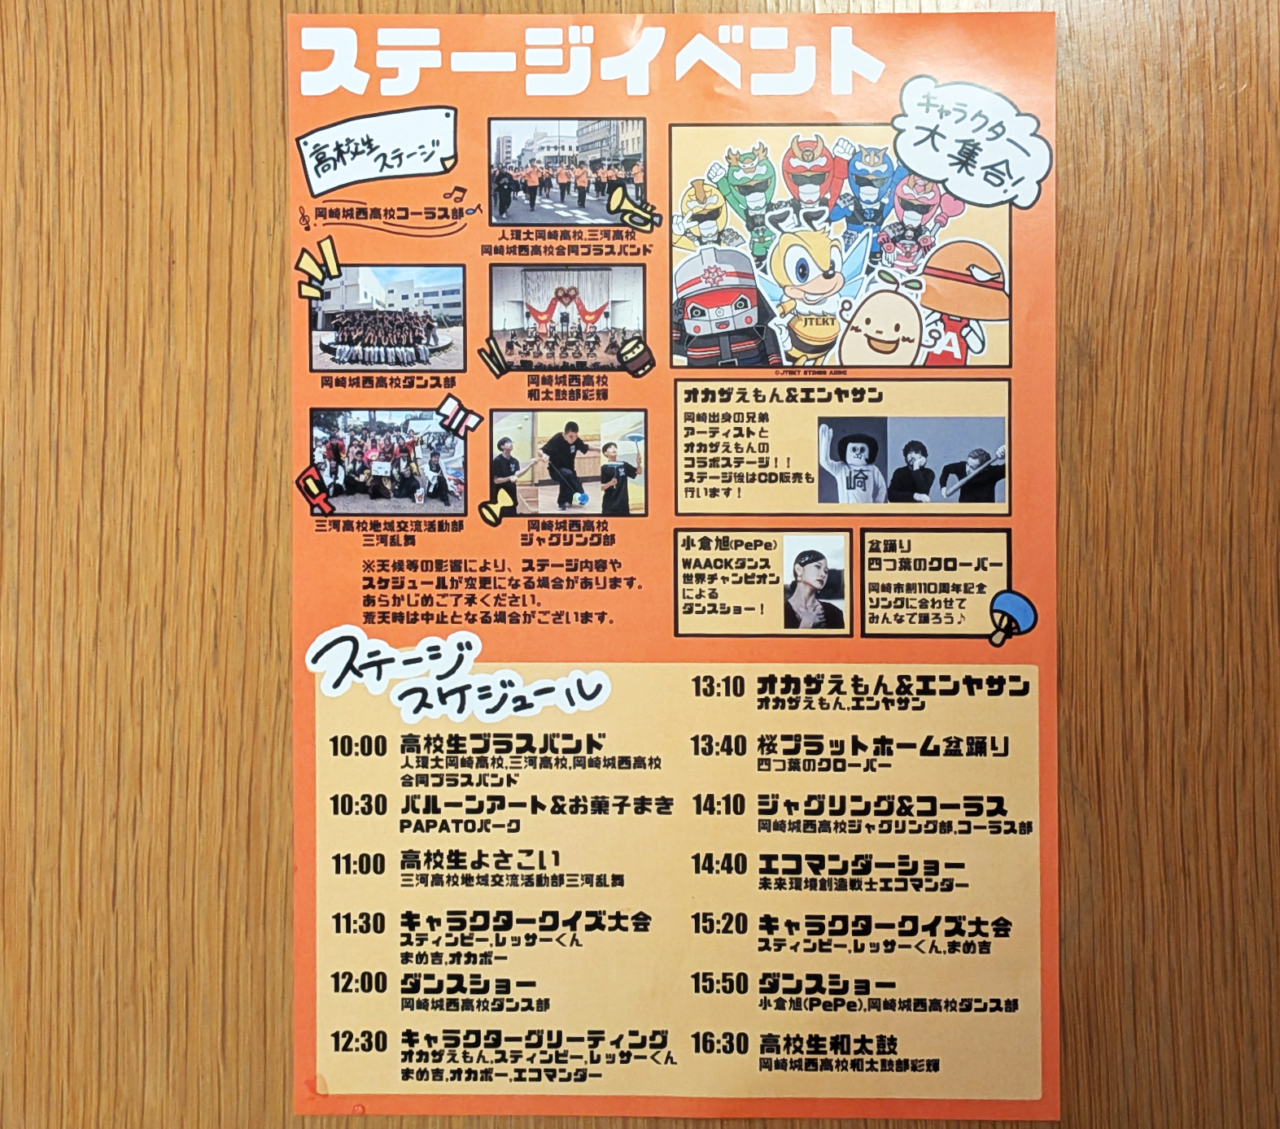 ステージイベント
高校生
ステージ
岡崎城西高校コーラス部
人環大岡崎高校,三河高校
岡崎城西高校合同ブラスバンド
岡崎城西高校ダンス部
岡崎城西高校
和太鼓部彩輝
三河高校地域交流活動部
三河乱舞
岡崎城西高校
ジャグリング部
※天候等の影響により、ステージ内容や
スケジュールが変更になる場合があります。
あらかじめご了承ください。
荒天時は中止となる場合がございます。
キャラクター
大集合!
JTEKT
A
©JTEKT STINGS AICHI
オカザえもん&エンヤサン
岡崎出身の兄弟
アーティストと
オカザえもんの
コラボステージ!!
ステージ後はCD販売も
行います!
崎
小倉旭(PePe)
WAACKダンス
世界チャンピオン
による
ダンスショー!
盆踊り
四つ葉のクローバー
岡崎市制110周年記念
ソングに合わせて
みんなで踊ろう♪
ステージ
スケジュール
10:00 高校生ブラスバンド
人環大岡崎高校,三河高校,岡崎城西高校
合同ブラスバンド
10:30 バルーンアート&お菓子まき
PAPATOパーク
11:00 高校生よさこい
三河高校地域交流活動部三河乱舞
11:30 キャラクタークイズ大会
スティンビー,レッサーくん
まめ吉,オカボー
12:00 ダンスショー
岡崎城西高校ダンス部
12:30 キャラクターグリーティング
オカザえもん,スティンビー,レッサーくん
まめ吉,オカボー,エコマンダー
13:10 オカザえもん&エンヤサン
オカザえもん,エンヤサン
13:40 桜プラットホーム盆踊り
四つ葉のクローバー
14:10 ジャグリング&コーラス
岡崎城西高校ジャグリング部,コーラス部
14:40 エコマンダーショー
未来環境創造戦士エコマンダー
15:20 キャラクタークイズ大会
スティンビー,レッサーくん,まめ吉
15:50 ダンスショー
小倉旭(PePe),岡崎城西高校ダンス部
16:30 高校生和太鼓
岡崎城西高校和太鼓部彩輝